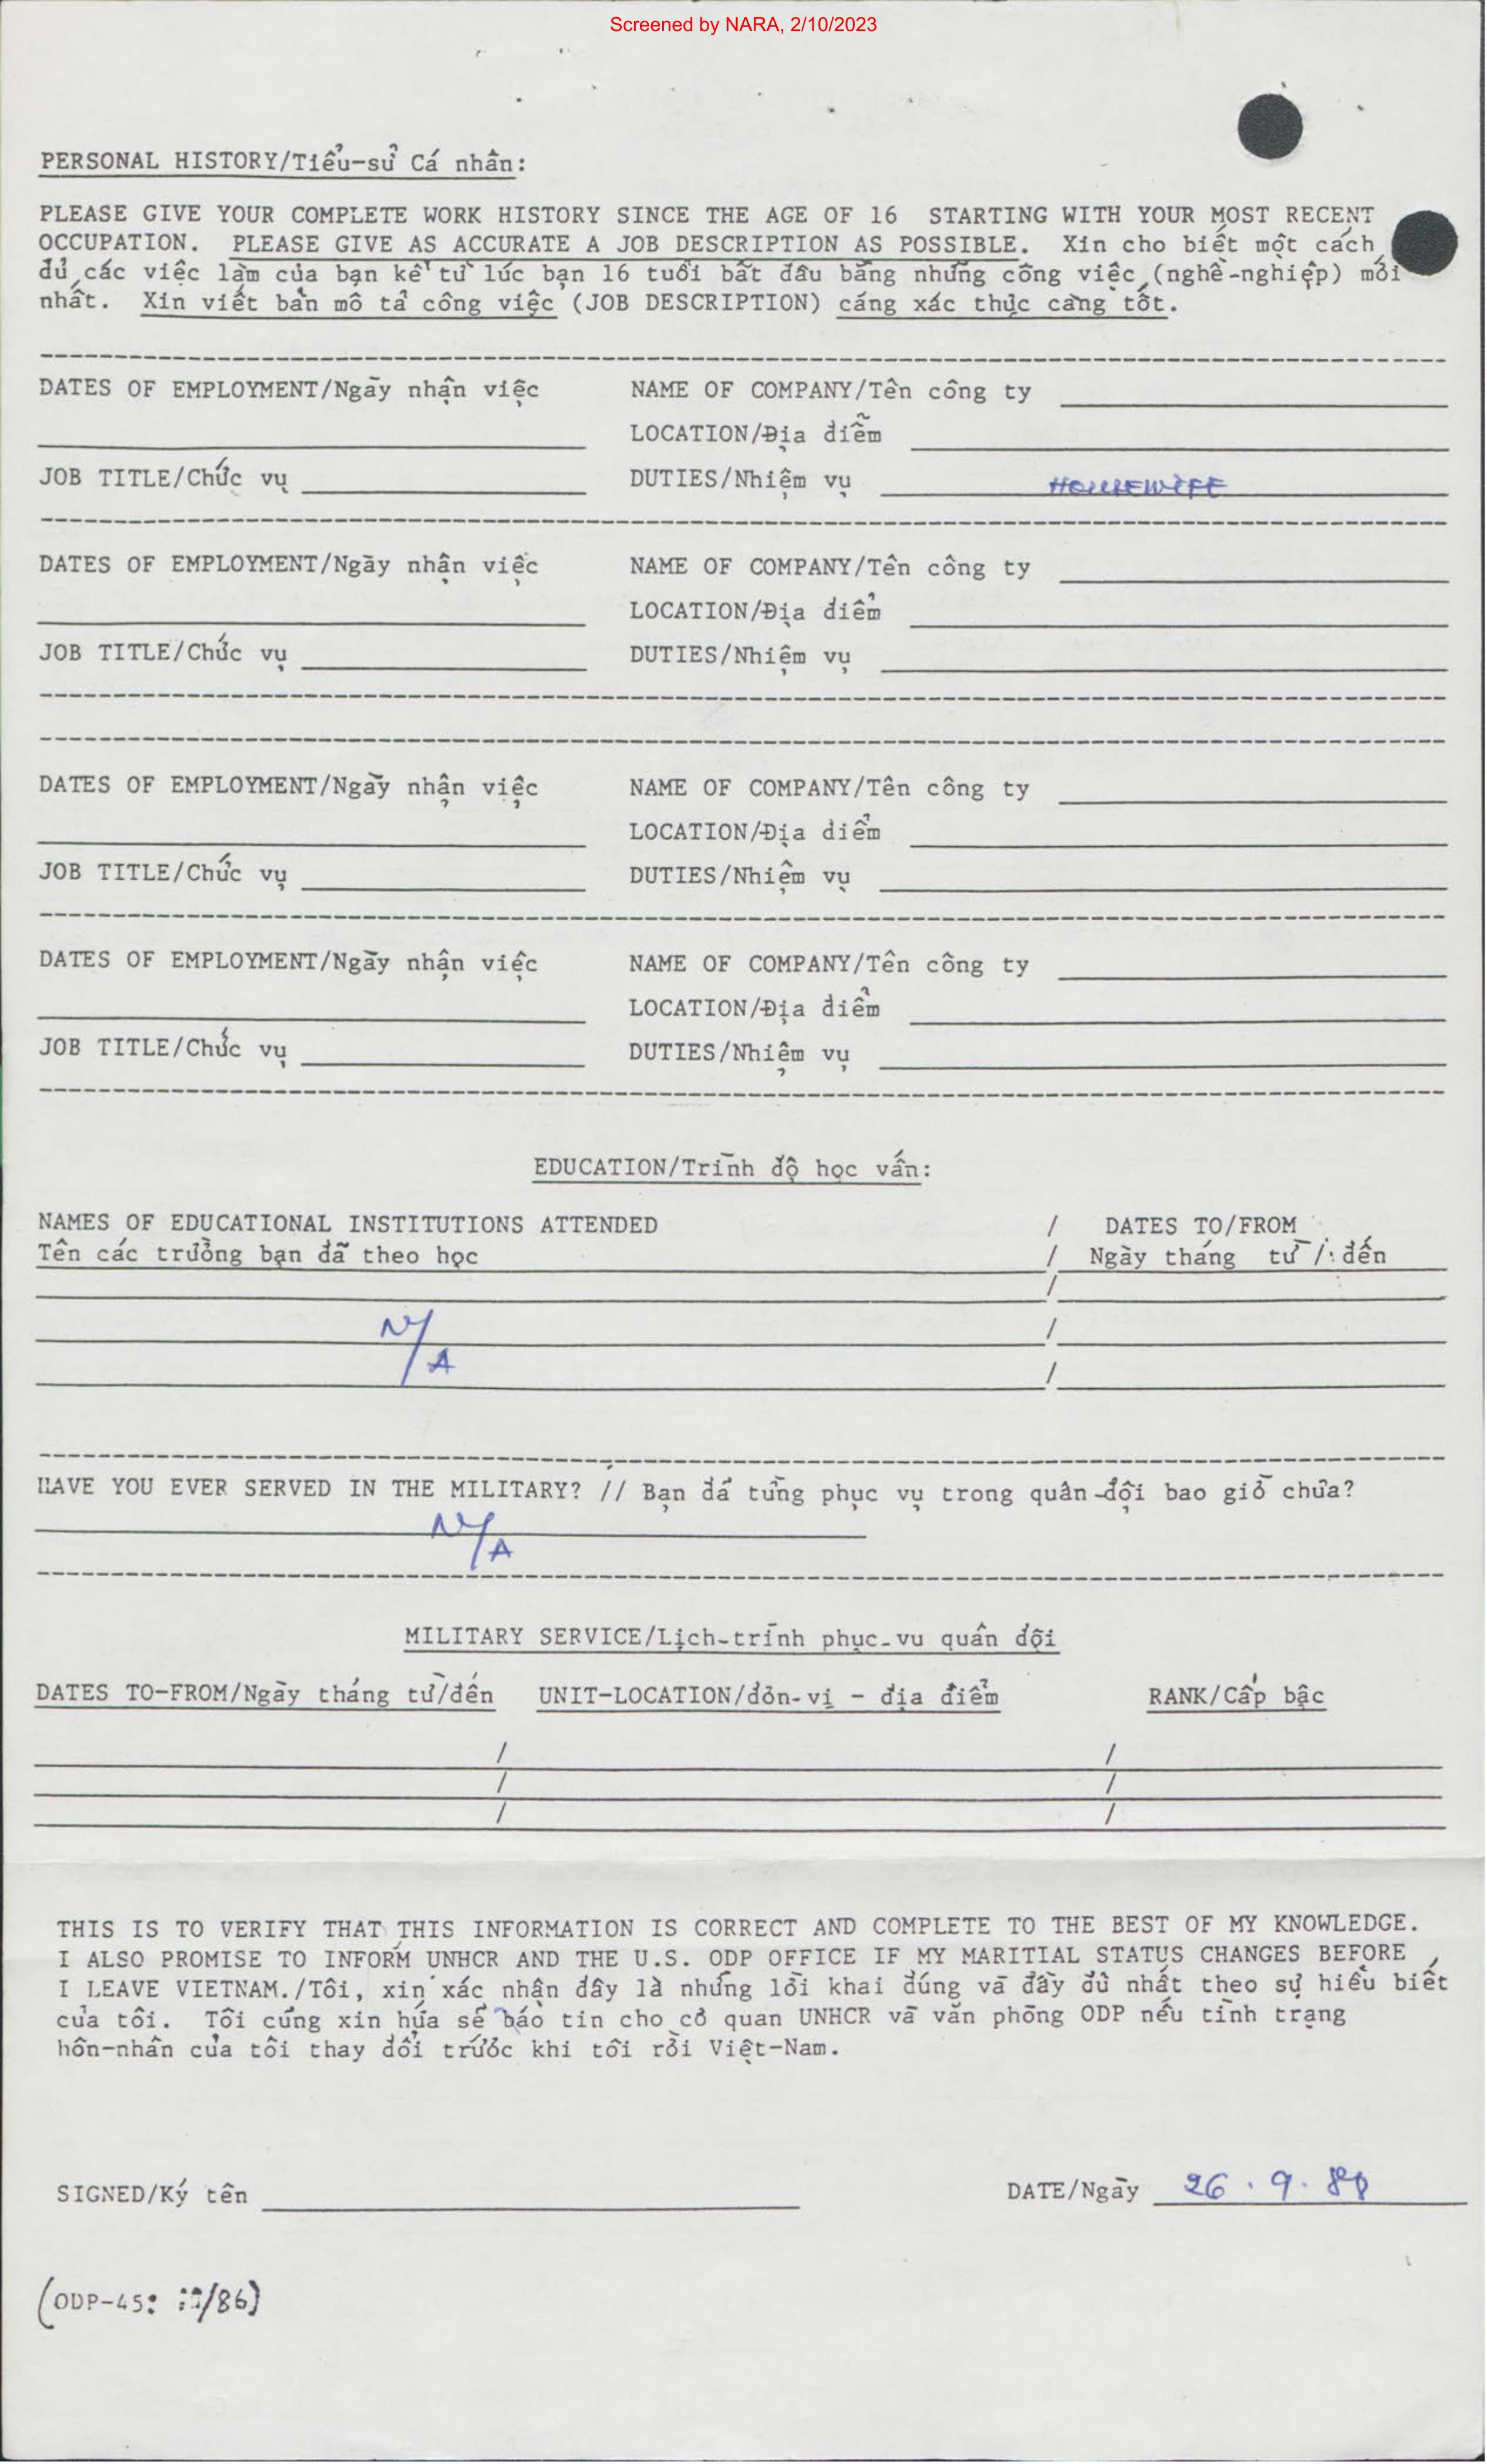 Screened by NARA, 2/10/2023
PERSONAL HISTORY/Tiểu-sử Cá nhân:
PLEASE GIVE YOUR COMPLETE WORK HISTORY SINCE THE AGE OF 16 STARTING WITH YOUR MOST RECENT
OCCUPATION. PLEASE GIVE AS ACCURATE A JOB DESCRIPTION AS POSSIBLE. Xin cho biết một cách
đủ các việc làm của bạn kể từ lúc bạn 16 tuổi bắt đầu bằng những công việc (nghề-nghiệp) mới
nhất. Xin viết bản mô tả công việc (JOB DESCRIPTION) cáng xác thực càng tốt.
DATES OF EMPLOYMENT/Ngày nhận việc NAME OF COMPANY/Tên công ty
LOCATION/Địa diễm
JOB TITLE/Chức vụ DUTIES/Nhiệm vụ HOUSEWIFE
DATES OF EMPLOYMENT/Ngày nhận việc NAME OF COMPANY/Tên công ty
LOCATION/Địa diểm
JOB TITLE/Chức vụ DUTIES/Nhiệm vụ
DATES OF EMPLOYMENT/Ngày nhận việc NAME OF COMPANY/Tên công ty
LOCATION/Địa diểm
JOB TITLE/Chức vụ DUTIES/Nhiệm vụ
DATES OF EMPLOYMENT/Ngày nhận việc NAME OF COMPANY/Tên công ty
LOCATION/Địa diểm
JOB TITLE/Chức vụ DUTIES/Nhiệm vụ
EDUCATION/Trình độ học vấn:
NAMES OF EDUCATIONAL INSTITUTIONS ATTENDED / DATES TO/FROM
Tên các trường bạn đã theo học / Ngày tháng từ / đến
/
N/A /
/
HAVE YOU EVER SERVED IN THE MILITARY? // Bạn đã từng phục vụ trong quân-đội bao giờ chưa?
N/A
MILITARY SERVICE/Lịch-trình phục-vu quân dội
DATES TO-FROM/Ngày tháng từ/đến UNIT-LOCATION/đơn-vị - địa điểm RANK/Cấp bậc
/ /
/ /
/ /
THIS IS TO VERIFY THAT THIS INFORMATION IS CORRECT AND COMPLETE TO THE BEST OF MY KNOWLEDGE.
I ALSO PROMISE TO INFORM UNHCR AND THE U.S. ODP OFFICE IF MY MARITIAL STATUS CHANGES BEFORE
I LEAVE VIETNAM./Tôi, xin xác nhận đây là những lời khai đúng và đầy đủ nhất theo sự hiểu biết
của tôi. Tôi cũng xin hứa sẽ báo tin cho cơ quan UNHCR và văn phòng ODP nếu tình trạng
hôn-nhân của tôi thay đổi trước khi tôi rời Việt-Nam.
SIGNED/Ký tên DATE/Ngày 26.9.88
(ODP-45: /86)